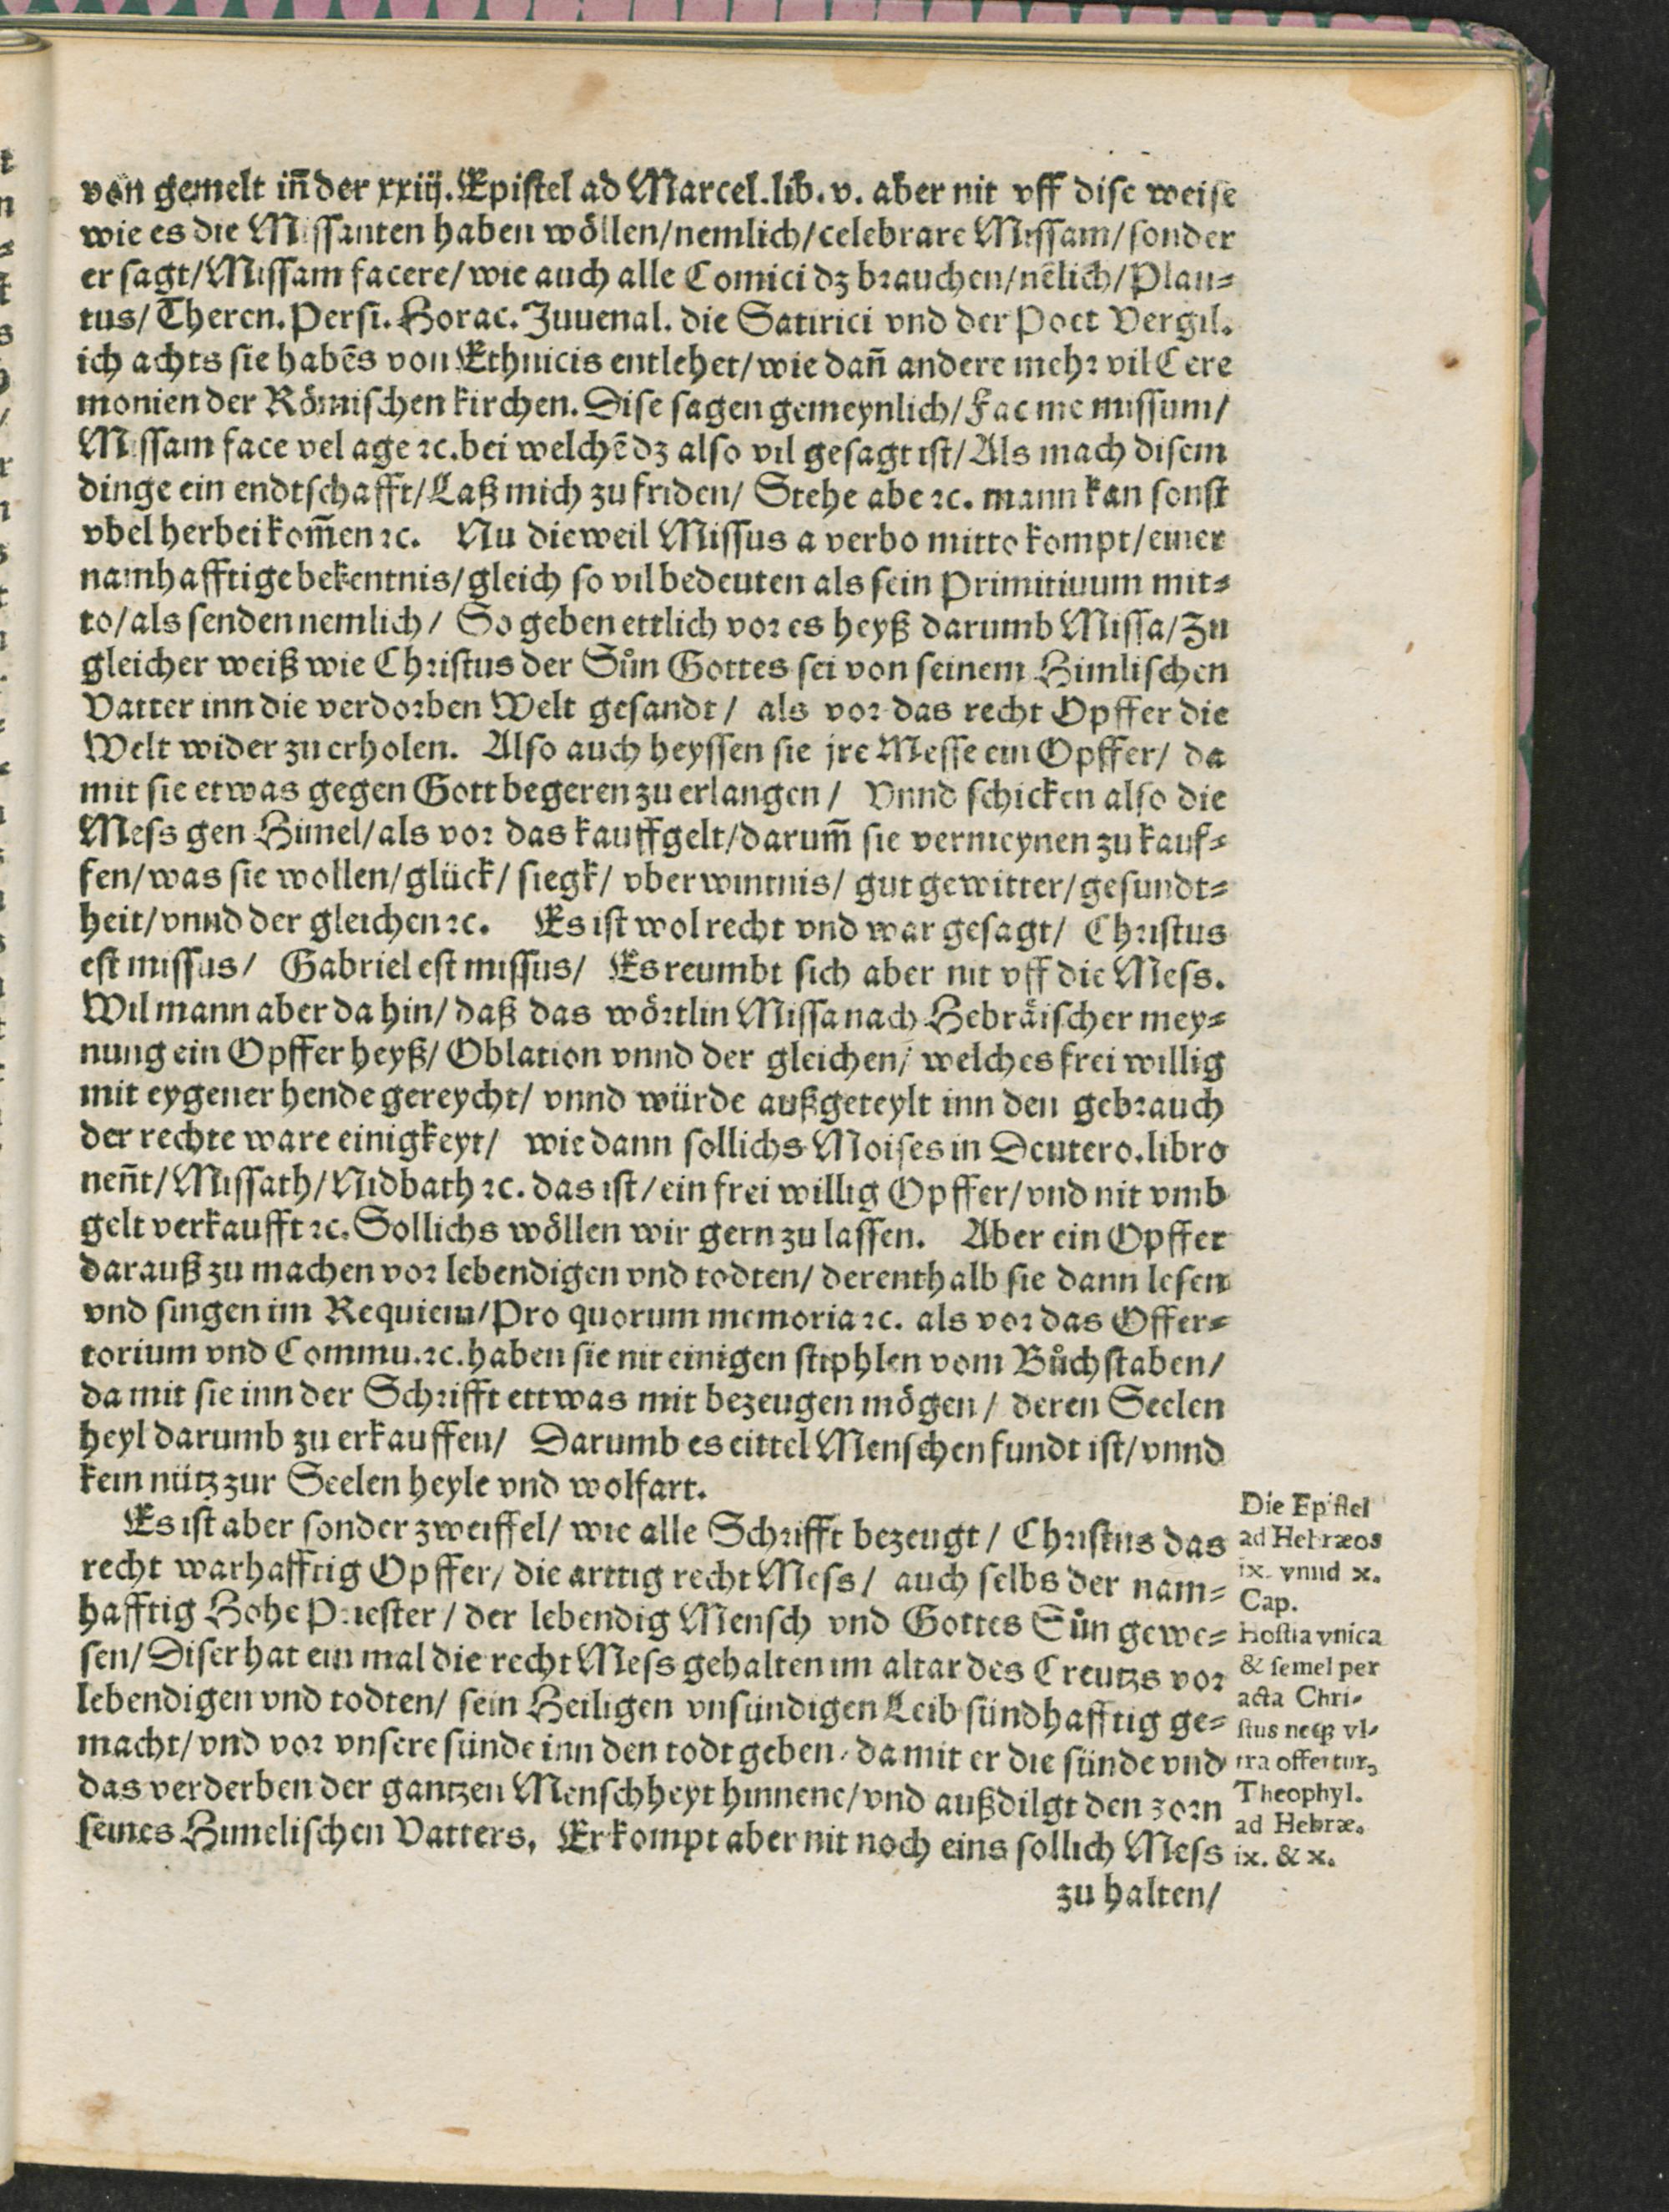 von gemelt iñ der xxiij. Epistel ad Marcel. lib. v. aber nit vff dise weise
wie es die Missanten haben wöllen/nemlich/celebrare Missam/sonder
er sagt/Missam facere/wie auch alle Comici dz brauchen/nēlich/Plau⸗
tus/Theren. Persi. Horac. Juuenal. die Satirici vnd der Poet Vergil.
ich achts sie habēs von Ethnicis entlehet/wie dañ andere mehr vil Cere
monien der Römischen kirchen. Dise sagen gemeynlich/Fac me missum/
Missam face vel age ꝛc. bei welchē dz also vil gesagt ist/Als mach disem
dinge ein endtschafft/Laß mich zu friden/ Stehe abe ꝛc. mann kan sonst
vbel herbei kom̄en ꝛc. Nu dieweil Missus a verbo mitto kompt/einer
namhafftige bekentnis/gleich so vil bedeuten als sein Primitiuum mit⸗
to/als senden nemlich/ So geben ettlich vor es heyß darumb Missa/Zu
gleicher weiß wie Christus der Sůn Gottes sei von seinem Himlischen
Vatter inn die verdorben Welt gesandt/ als vor das recht Opffer die
Welt wider zu erholen. Also auch heyssen sie jre Messe ein Opffer/ da
mit sie etwas gegen Gott begeren zu erlangen/ Vnnd schicken also die
Mess gen Himel/als vor das kauffgelt/darum̄ sie vermeynen zu kauf⸗
fen/was sie wollen/glück/ siegk/ vberwintnis/ gut gewitter/gesundt⸗
heit/vnnd der gleichen ꝛc. Es ist wol recht vnd war gesagt/ Christus
est missus/ Gabriel est missus/ Es reumbt sich aber nit vff die Mess.
Wil mann aber da hin/ daß das wörtlin Missa nach Hebräischer mey⸗
nung ein Opffer heyß/ Oblation vnnd der gleichen/ welches frei willig
mit eygener hende gereycht/ vnnd würde außgeteylt inn den gebrauch
der rechte ware einigkeyt/ wie dann sollichs Moises in Deutero. libro
neñt/Missath/Nidbath ꝛc. das ist/ein frei willig Opffer/vnd nit vmb
gelt verkaufft ꝛc. Sollichs wöllen wir gern zu lassen. Aber ein Opffer
darauß zu machen vor lebendigen vnd todten/ derenthalb sie dann lesen
vnd singen im Requiem/Pro quorum memoria ꝛc. als vor das Offer⸗
torium vnd Commu. ꝛc. haben sie nit einigen stiphlen vom Bůchstaben/
da mit sie inn der Schrifft ettwas mit bezeugen mögen/ deren Seelen
heyl darumb zu erkauffen/ Darumb es eittel Menschen fundt ist/vnnd
kein nütz zur Seelen heyle vnd wolfart.
Es ist aber sonder zweiffel/ wie alle Schrifft bezeugt/ Christus das
recht warhafftig Opffer/ die arttig recht Mess/ auch selbs der nam⸗
hafftig Hohe Priester/ der lebendig Mensch vnd Gottes Sůn gewe⸗
sen/Diser hat ein mal die recht Mess gehalten im altar des Creutzs vor
lebendigen vnd todten/ sein Heiligen vnsündigen Leib sündhafftig ge⸗
macht/vnd vor vnsere sünde inn den todt geben/ da mit er die sünde vnd
das verderben der gantzen Menschheyt hinneme/vnd außdilgt den zorn
seines Himelischen Vatters, Er kompt aber nit noch eins sollich Mess
zu halten/
Die Epistel
ad Hebræos
ix. vnnd x.
Cap.
Hostia vnica
& semel per
acta Chri-
stus neqꝫ vl-
tra offertur,
Theophyl.
ad Hebræ.
ix. & x.